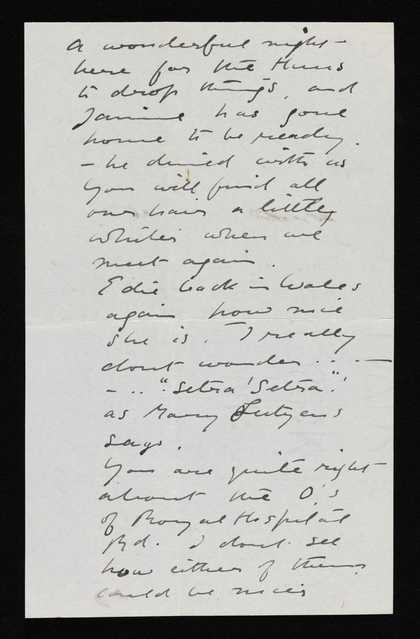 A wonderful night –
here for the Huns
to drop things, and
has gone
home to be ready.
– he dined with us
You will find all
our hairs a little
whiter when we
meet again.
Edie back in Wales
again how nice
she is. I really
dont wonder . . . —
– . . "Setra! Setra!"
as Mary Lutyens
says.
You are quite right
about the O's
of Royal Hospital
Rd. I dont see
how either of them
could be nicer